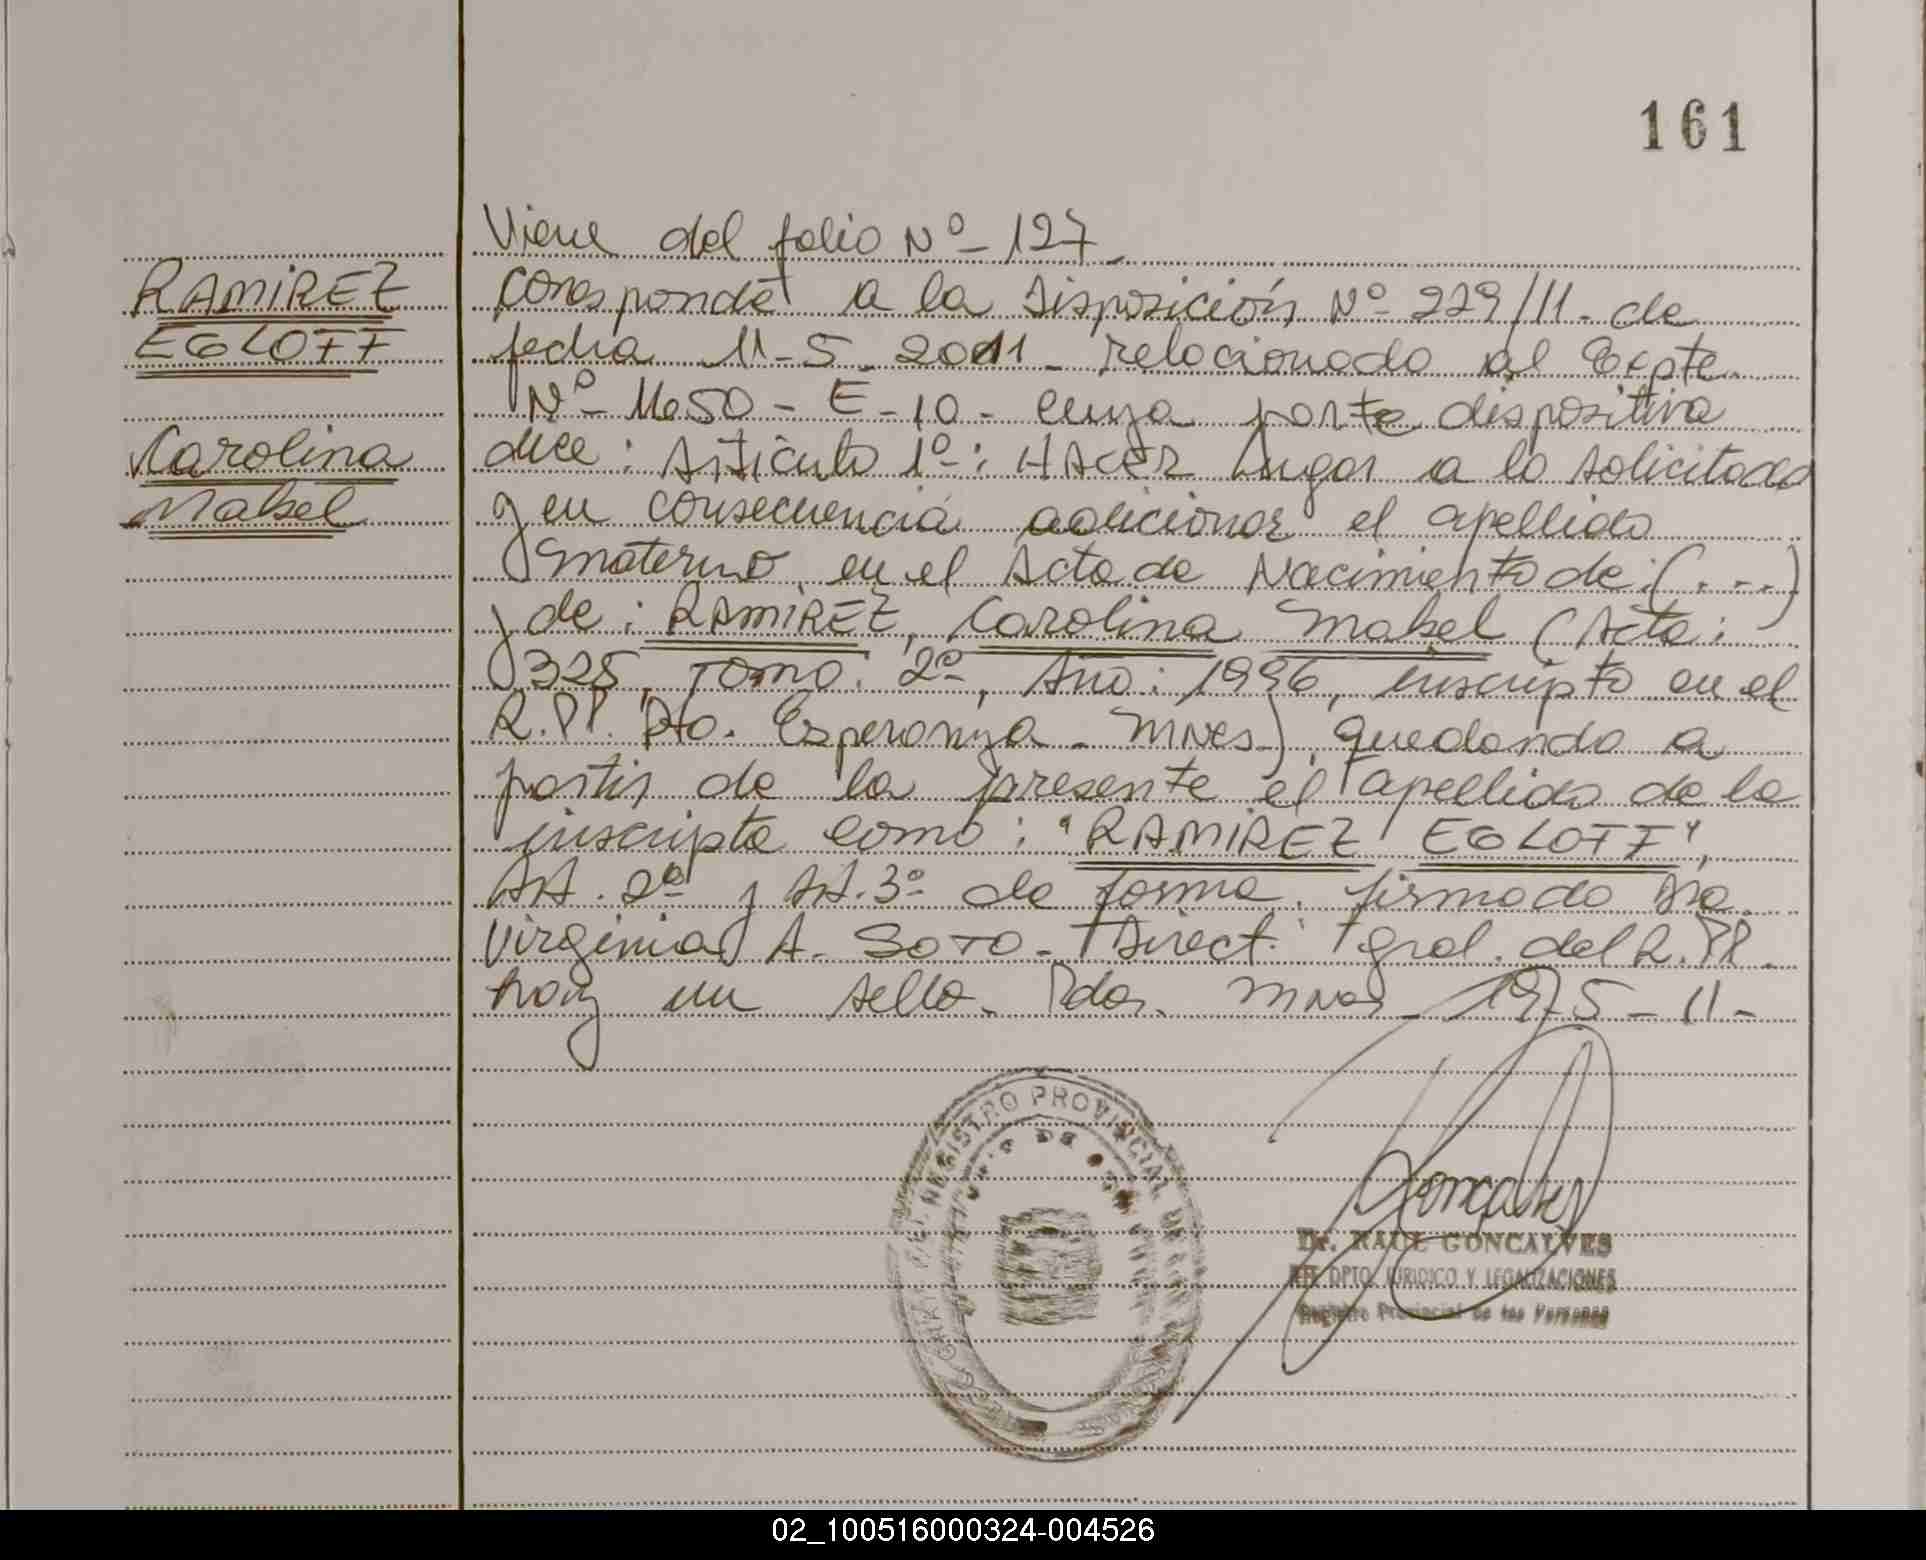 161
Viene del folio Nº- 127_
RAMIREZ
EGLOFF
Carolina
Mabel
Corresponde a la Disposición Nº 229/11- de
fecha 11-5-2011- relacionado al Expte.
Nº- 1650-E-10- cuya parte dispositiva
dice: Artículo 1º-: HACER Lugar a lo solicitado
y en consecuencia adicionar el apellido
materno, en el Acta de Nacimiento de: (....)
y de: RAMIREZ, Carolina Mabel (Acta:
325, Tomo: 2º, Año: 1996, inscripto en el
R.PP. Pto. Esperanza - Mnes), quedando a
partir de la presente el apellido de la
inscripta como: "RAMIREZ EGLOFF",
Art. 2º y Art. 3º de forma. firmado Dra.
Virginia A. SOTO- Direct. gral. del R.PP.
hay un sello. Pdas. Mnes 19-5-11-
REGISTRO PROVINCIAL DE
Goncalves
Dr. RAUL GONCALVES
DPTO. JURIDICO Y LEGALIZACIONES
Registro Provincial de las Personas
02_100516000324-004526